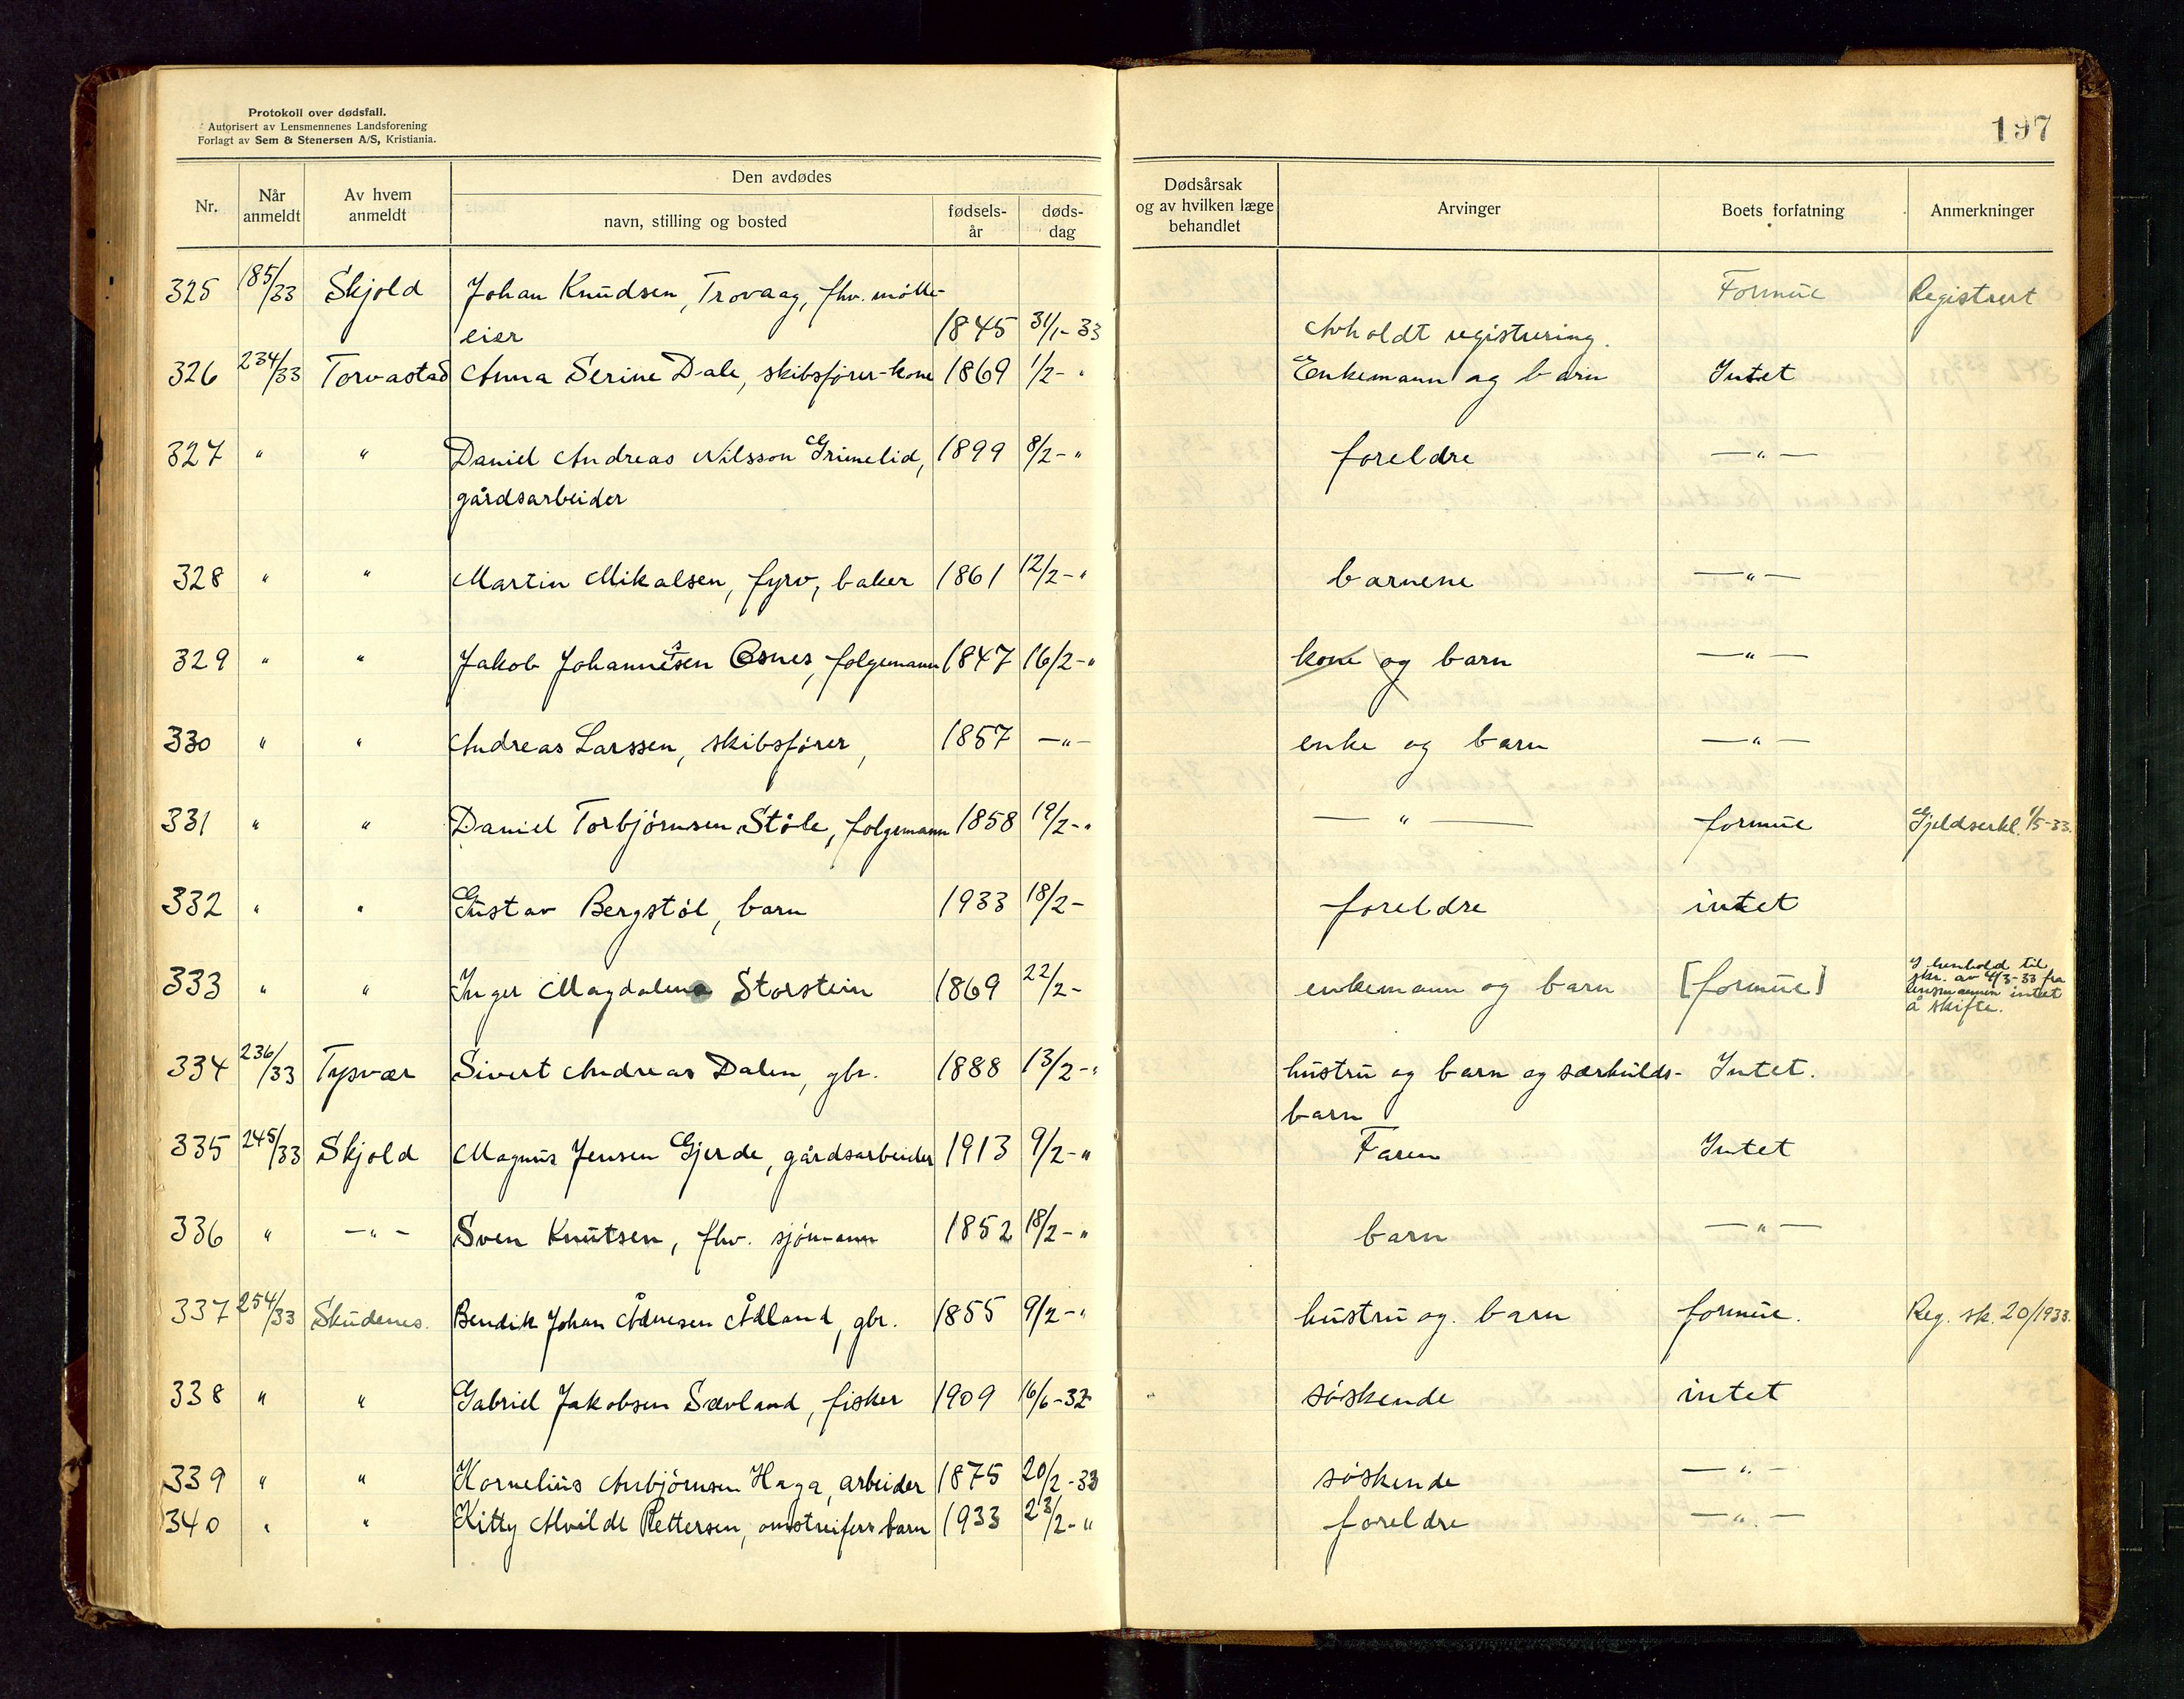 Protokoll over dødsfall.
Autorisert av Lensmennenes Landsforening
Forlagt av Sem & Stenersen A/S, Kristiania.
197
Nr. Når anmeldt Av hvem anmeldt Den avdødes navn, stilling og bosted fødsels-år døds-dag Dødsårsak og av hvilken læge behandlet Arvinger Boets forfatning Anmerkninger
325 185/33 Skjold Johan Knudsen, Trovaag, fhv. mølle- Formue Registrert
eier 1845 31/1-33 Avholdt registrering.
326 234/33 Torvastad Anna Serine Dale, skibsfører-kone 1869 1/2- " Enkemann og barn Intet
327 " " Daniel Andreas Nilsson Grimelid, 1899 8/2- " foreldre —"—
gårdsarbeider
328 " " Martin Mikalsen, fyrv, baker 1861 12/2- " barnene —"—
329 " " Jakob Johannessen Osnes, folgemann 1847 16/2- " kone og barn —"—
330 " " Andreas Larssen, skibsfører, 1857 —"— enke og barn —"—
331 " " Daniel Torbjørnsen Støle, folgemann 1858 19/2- " —"— formue Gjeldserkl. 1/5-33.
332 " " Gustav Bergstøl, barn 1933 18/2- foreldre intet
333 " " Inger Magdalena Storstein 1869 22/2- enkemann og barn [formue] I henhold til
skr. av 4/3-33 fra
lensmannen intet
å skifte.
334 236/33 Tysvær Sivert Andreas Dalen, gbr. 1888 13/2- " hustru og barn og særkulds- Intet.
barn
335 245/33 Skjold Magnus Jensen Gjerde, gårdsarbeider 1913 9/2- " Faren Intet
336 " —"— Sven Knutsen, fhv. sjømann 1852 18/2- " barn —"—
337 254/33 Skudenes. Bendik Johan Ådnesen Ådland, gbr. 1855 9/2- " hustru og. barn formue. Reg. sk. 20/1933.
338 " " Gabriel Jakobsen Sævland, fisker 1909 16/6-32 søskende intet
339 " " Kornelius Anbjørnsen Haga, arbeider 1875 20/2-33 søskende —"—
340 " " Kitty Alvilde Pettersen, omstreifers barn 1933 23/2- " foreldre —"—